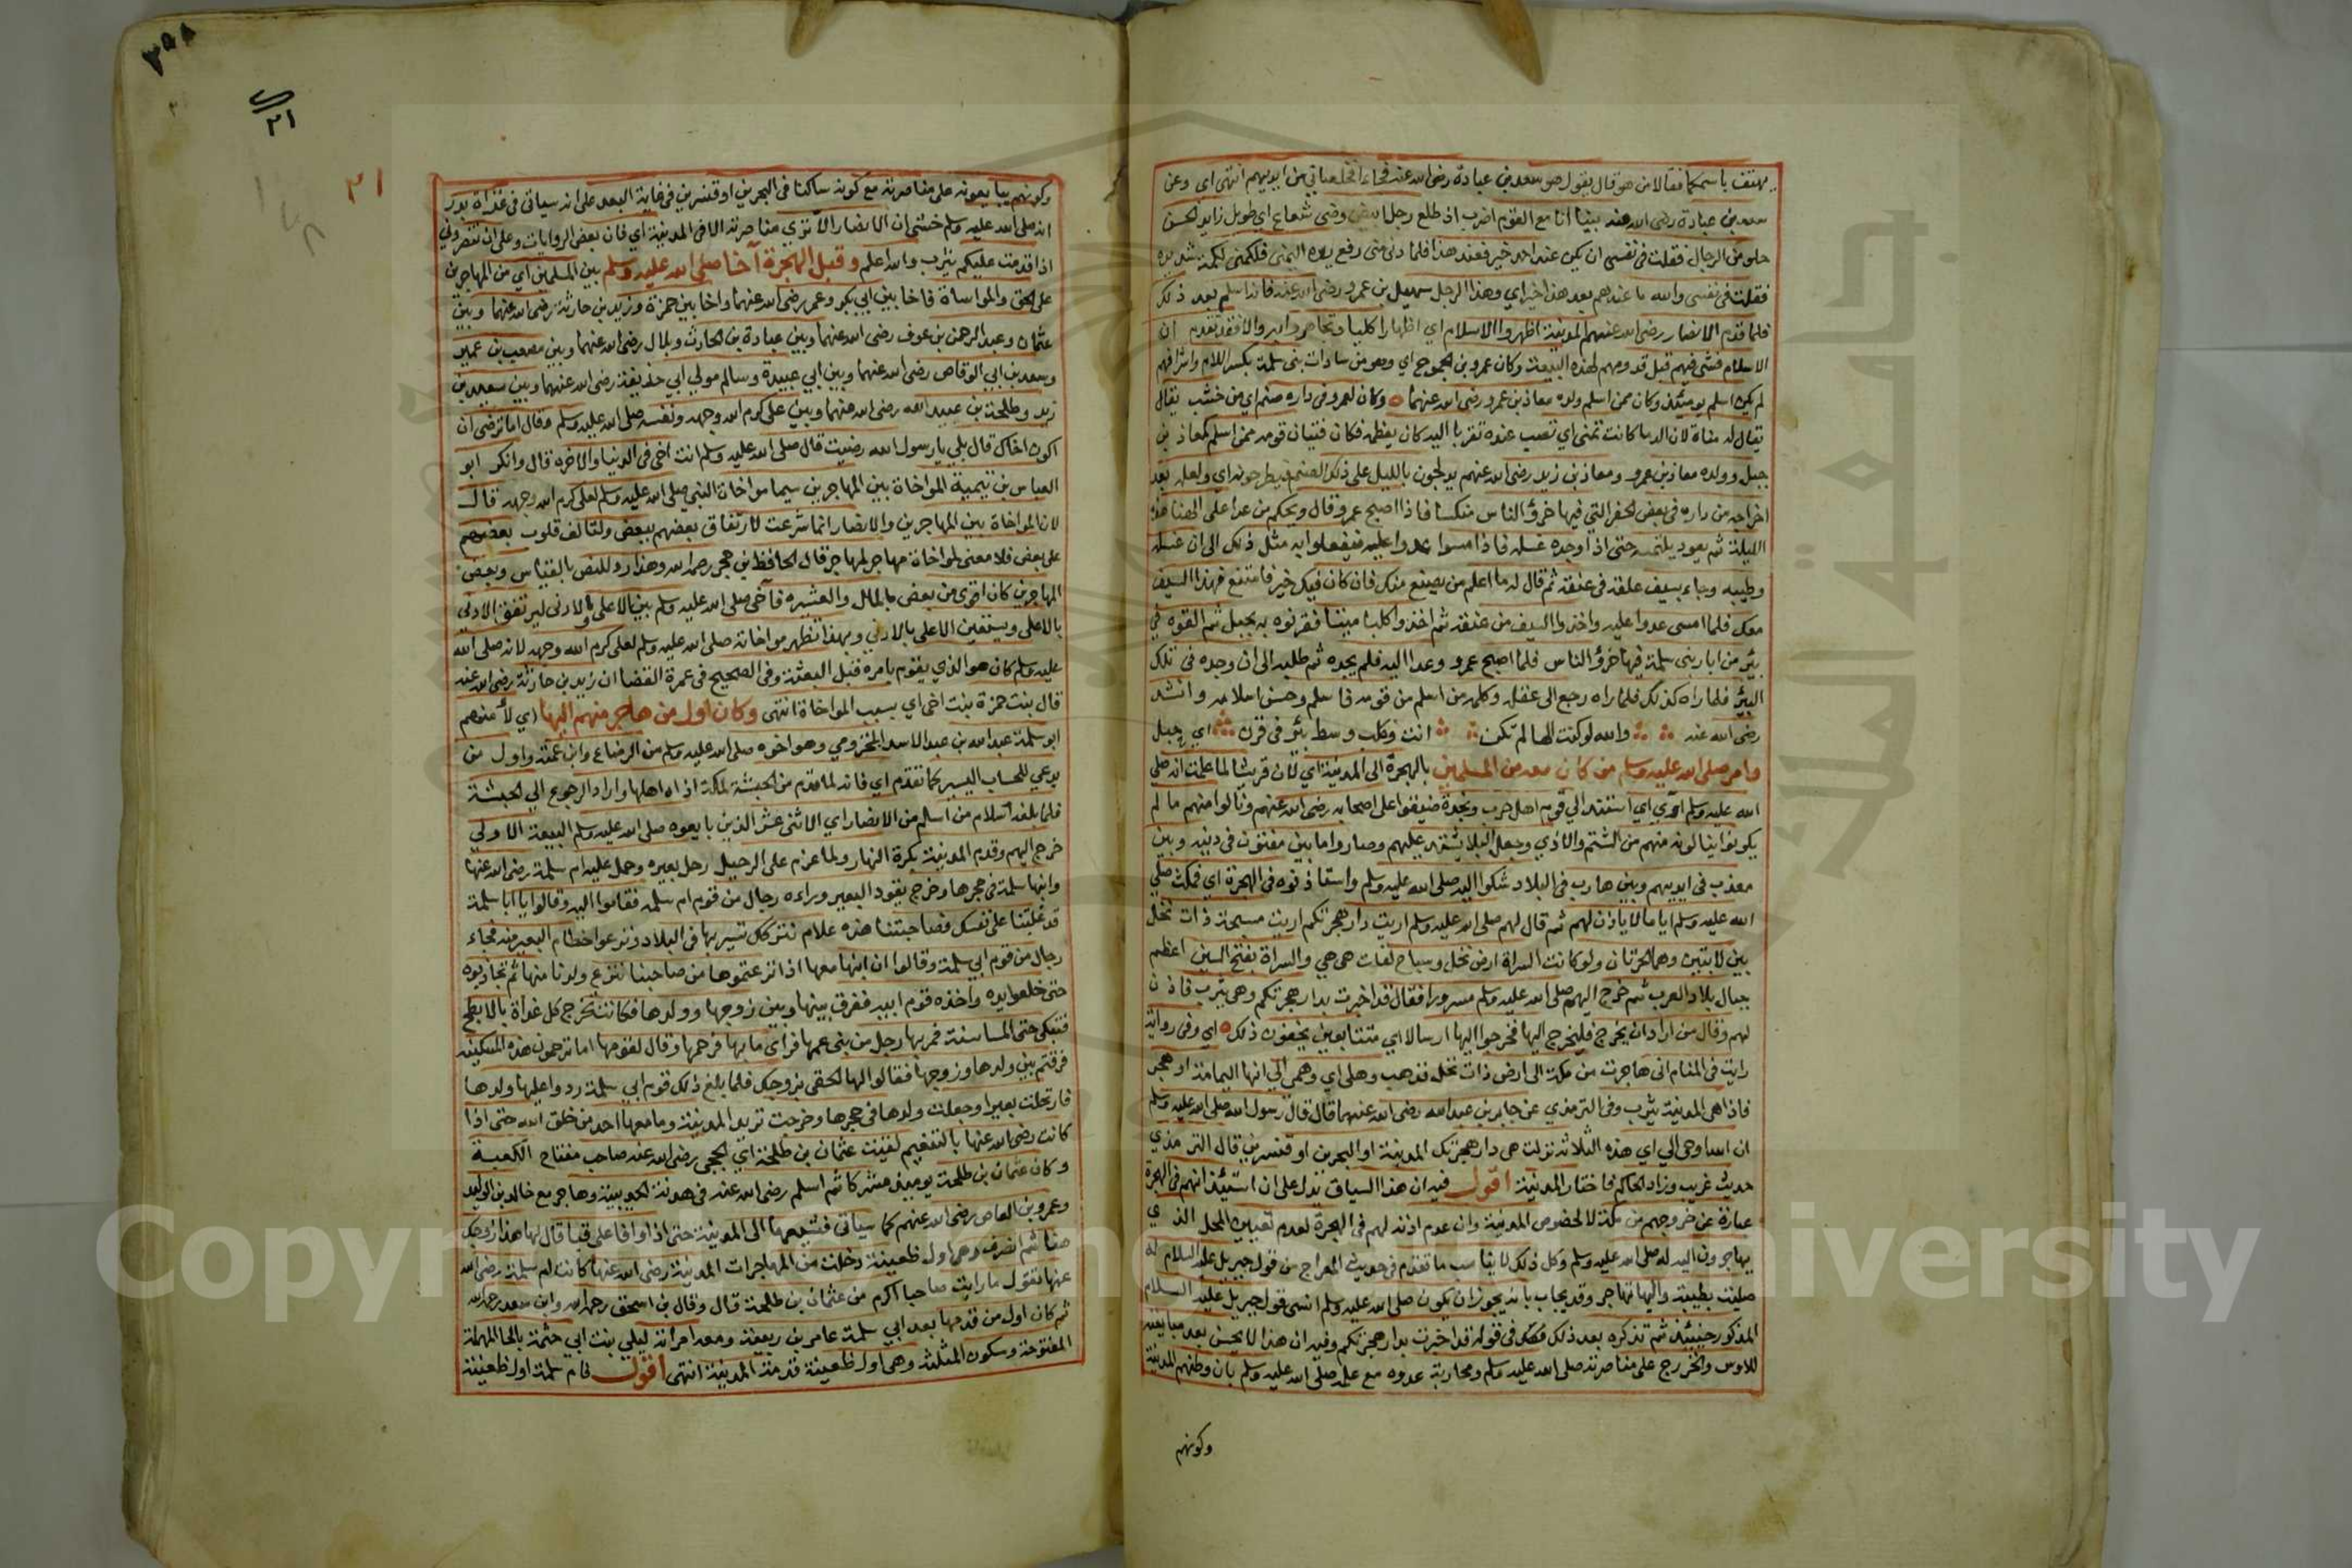 يهتف باسمكما فقالا من هو قال يقول هو سعد بن عبادة رضي الله عنه فجاءا فخلصاني من ايديهم انتهى اي وعن
سعد بن عبادة رضى الله عنه بينا أنا مع القوم اضرب اذ طلع رجل ابيض وضى شعاع اي طويل زايد الحسن
حلو من الرجال فقلت فى نفسى ان يكن عند احد خير فعند هذا فلما دنى منى رفع يده اليمنى فلكمنى لكمة شديدة
فقلت فى نفسى والله ما عندهم بعد هذا خير اي وهذا الرجل سهيل بن عمرو رضى الله عنه فانه اسلم بعد ذلك
فلما قدم الانصار رضى الله عنهم المدينة اظهروا الاسلام اي اظهارا كليا وتجاهروا به والا فقد تقدم ان
الاسلام فشى فيهم قبل قدومهم لهذه البيعة وكان عمرو بن الجموح اي وهو من سادات بنى سلمة بكسر اللام واشرافهم
لم يكن اسلم يومئذ وكان ممن اسلم ولده معاذ بن عمرو رضى الله عنهما وكان لعمرو فى داره صنم اي من خشب يقال
يقال له مناة لان الدما كانت تمنى اي تصب عنده تقربا اليه كان يعظمه فكان فتيان قومه ممن اسلم كمعاذ بن
جبل وولده معاذ بن عمرو ومعاذ بن زيد رضى الله عنهم يدلجون بالليل على ذلك الصنم فيطرحونه اي ولعله بعد
اخراجه من داره فى بعض الحفر التي فيها خرؤ الناس منكسا فاذا اصبح عمرو قال ويحكم من عدا على الهنا هذه
الليلة ثم يعود يلتمسه حتى اذا وجده غسله فاذا امسوا عدوا عليه فيفعلوا به مثل ذلك الى ان غسله
وطيبه وجاء بسيف علقه فى عنقه ثم قال له ما اعلم من يصنع بك فان كان فيك خير فامتنع فهذا السيف
معك فلما امسى عدوا عليه واخذوا السيف من عنقه ثم اخذوا كلبا ميتا فقرنوه به بحبل ثم القوه في
بئر من ابار بنى سلمة فيها خرؤ الناس فلما اصبح عمرو وعدا اليه فلم يجده ثم طلبه الى ان وجده فى تلك
البئر فلما راه كذلك فلما راه رجع الى عقله وكلمه من اسلم من قومه فاسلم وحسن اسلامه وانشد
رضى الله عنه والله لو كنت الها لم تكن انت وكلب وسط بئر فى قرن اي حبل
وامر صلى الله عليه وسلم من كان معه من المسلمين بالهجرة الى المدينة اي لان قريشا لما علمت انه صلى
الله عليه وسلم اوى اي استند الى قوم اهل حرب ونجدة ضيقوا على اصحابه رضى الله عنهم ونالوا منهم ما لم
يكونوا ينالونه منهم من الشتم والاذي وجعل البلا يشتد عليهم وصاروا ما بين مفتون فى دينه وبين
معذب فى ايديهم وبين هارب فى البلاد شكوا اليه صلى الله عليه وسلم واستاذنوه فى الهجرة اي فمكث صلى
الله عليه وسلم اياما لا ياذن لهم ثم قال لهم صلى الله عليه وسلم اريت دار هجرتكم اريت سبخة ذات نخل
بين لابتين وهما الحرتان ولو كانت السراة ارض نخل وسباخ لقلت هى هي والسراة بفتح السين اعظم
جبال بلاد العرب ثم خرج اليهم صلى الله عليه وسلم مسرورا فقال قد اخبرت بدار هجرتكم وهى يثرب فاذن
لهم وقال من اراد ان يخرج فليخرج اليها فخرجوا اليها ارسالا اي متتابعين يخفون ذلك اي وفى رواية
رايت فى المنام انى هاجرت من مكة الى ارض ذات نخل فذهب وهلى اي وهمى الى انها اليمامة او هجر
فاذا هى المدينة يثرب وفى الترمذي عن جابر بن عبد الله رضى الله عنهما قال قال رسول الله صلى الله عليه وسلم
ان الله اوحى الي اي هذه الثلاثة نزلت هى دار هجرتك المدينة او البحرين او قنسرين قال الترمذي
حديث غريب وزاد الحاكم فاختار المدينة اقول فيه ان هذا السياق يدل على ان استيذانهم فى الهجرة
عبارة عن خروجهم من مكة لا لخصوص المدينة وان عدم اذنه لهم فى الهجرة لعدم تعيين المحل الذي
يهاجرون اليه له صلى الله عليه وسلم وكل ذلك لا يناسب ما تقدم فى حديث المعراج من قول جبريل عليه السلام له
صليت بطيبة واليها تهاجر وقد يجاب بانه يجوز ان يكون صلى الله عليه وسلم انسى قول جبريل عليه السلام
المذكور حينئذ ثم تذكره بعد ذلك فى قوله قد اخبرت بدار هجرتكم وفيه ان هذا لا يحسن بعد مبايعته
للاوس والخزرج على مناصرته صلى الله عليه وسلم ومحاربة عدوه مع علمه صلى الله عليه وسلم بان وطنهم المدينة
وكونهم
٣٥٨
٢١
٢١
وكونهم يبايعونه على مناصرته مع كونه ساكنا فى البحرين او قنسرين فى غاية البعد على انه سياتى فى غزاة بدر
انه صلى الله عليه وسلم خشى ان الانصار لا ترى مناصرته الا فى المدينة اي فان بعض الروايات وعلى ان تنصروني
اذا قدمت عليكم يثرب والله اعلم وقبل الهجرة آخا صلى الله عليه وسلم بين المسلمين اي من المهاجرين
على الحق والمواساة فاخا بين ابي بكر وعمر رضى الله عنهما واخا بين حمزة وزيد بن حارثة رضى الله عنهما وبين
عثمان وعبد الرحمن بن عوف رضى الله عنهما وبين عبادة بن الحارث وبلال رضى الله عنهما وبين مصعب بن عمير
وسعد بن ابي الوقاص رضى الله عنهما وبين ابي عبيدة وسالم مولي ابي حذيفة رضى الله عنهما وبين سعيد بن
زيد وطلحة بن عبيد الله رضى الله عنهما وبين على كرم الله وجهه ونفسه صلى الله عليه وسلم وقال اما ترضى ان
اكون اخاك قال بلى يا رسول الله رضيت قال صلى الله عليه وسلم انت اخى فى الدنيا والاخره قال وانكر ابو
العباس بن تيمية المواخاة بين المهاجرين سيما مواخاة النبي صلى الله عليه وسلم لعلى كرم الله وجهه قال
لان المواخاة بين المهاجرين والانصار انما شرعت لارتفاق بعضهم ببعض ولتالف قلوب بعضهم
على بعض فلا معنى لمواخاة مهاجر لمهاجر قال الحافظ بن حجر رحمه الله وهذا رد للنص بالقياس وبعض
المهاجرين كان اقوى من بعض بالمال والعشيره فآخى صلى الله عليه وسلم بين الاعلى والادنى ليرتفق الادنى
بالاعلى ويستعين الاعلى بالادنى وبهذا تظهر مواخاته صلى الله عليه وسلم لعلى كرم الله وجهه لانه صلى الله
عليه وسلم كان هو الذي يقوم بامره قبل البعثة وفى الصحيح فى عمرة القضا ان زيد بن حارثة رضى الله عنه
قال بنت حمزة بنت اخى اي بسبب المواخاة انتهى وكان اول من هاجر منهم اليها اي لا معهم
ابو سلمة عبد الله بن عبد الاسد المخزومي وهو اخوه صلى الله عليه وسلم من الرضاع وابن عمته واول من
يدعي للحساب اليسير كما تقدم اي فانه لما قدم من الحبشة لمكة اذاه اهلها واراد الرجوع الي الحبشة
فلما بلغه اسلام من اسلم من الانصار اي الاثنى عشر الذين بايعوه صلى الله عليه وسلم البيعة الاولي
خرج اليهم وقدم المدينة بكرة النهار ولما عزم على الرحيل رحل بعيره وحمل عليه ام سلمة رضى الله عنها
وابنها سلمة فى حجرها وخرج يقود البعير وراءه رجال من قوم ام سلمه فقاموا اليه وقالوا يا ابا سلمة
قد غلبتنا على نفسك فصاحبتنا هذه علام نتركك تسير بها فى البلاد ونزعوا خطام البعير منه فجاء
رجال من قوم ابي سلمة وقالوا ان ابنها معها اذا نزعتموها من صاحبنا ننزع ولدنا منها ثم تجاذبوه
حتى خلعوا يده واخذه قوم ابيه ففرق بينها وبين زوجها وولدها فكانت تخرج كل غداة بالابطح
فتبكى حتى المسا سنة فمر بها رجل من بنى عمها فراى ما بها فرحمها وقال لقومها اما ترحمون هذه المسكينه
فرقتم بين ولدها وزوجها فقالوا لها الحقى بزوجك فلما بلغ ذلك قوم ابي سلمة ردوا عليها ولدها
فارتحلت بعيرا وجعلت ولدها فى حجرها وخرجت تريد المدينة وما معها احد من خلق الله حتى اذا
كانت رضى الله عنها بالتنعيم لقيت عثمان بن طلحة اي الحجبى رضى الله عنه صاحب مفتاح الكعبة
وكان عثمان بن طلحة يومئذ مشركا ثم اسلم رضى الله عنه فى هدنة الحديبية وهاجر مع خالد بن الوليد
وعمرو بن العاص رضى الله عنهم كما سياتى فشيعها الى المدينة حتى اذا وافا على قبا قال لها هذا زوجك
هنا ثم انصرف وهى اول ظعينة دخلت من المهاجرات المدينة رضى الله عنها كانت ام سلمة رضى الله
عنها تقول ما رايت صاحبا اكرم من عثمان بن طلحة قال وقال بن اسحق رحمه الله وابن سعد رحمه الله
ثم كان اول من قدمها بعد ابي سلمة عامر بن ربيعة ومعه امراته ليلى بنت ابي حثمة بالحا المهملة
المفتوحة وسكون المثلثة وهى اول ظعينة قدمت المدينة انتهى اقول فام سلمة اول ظعينة